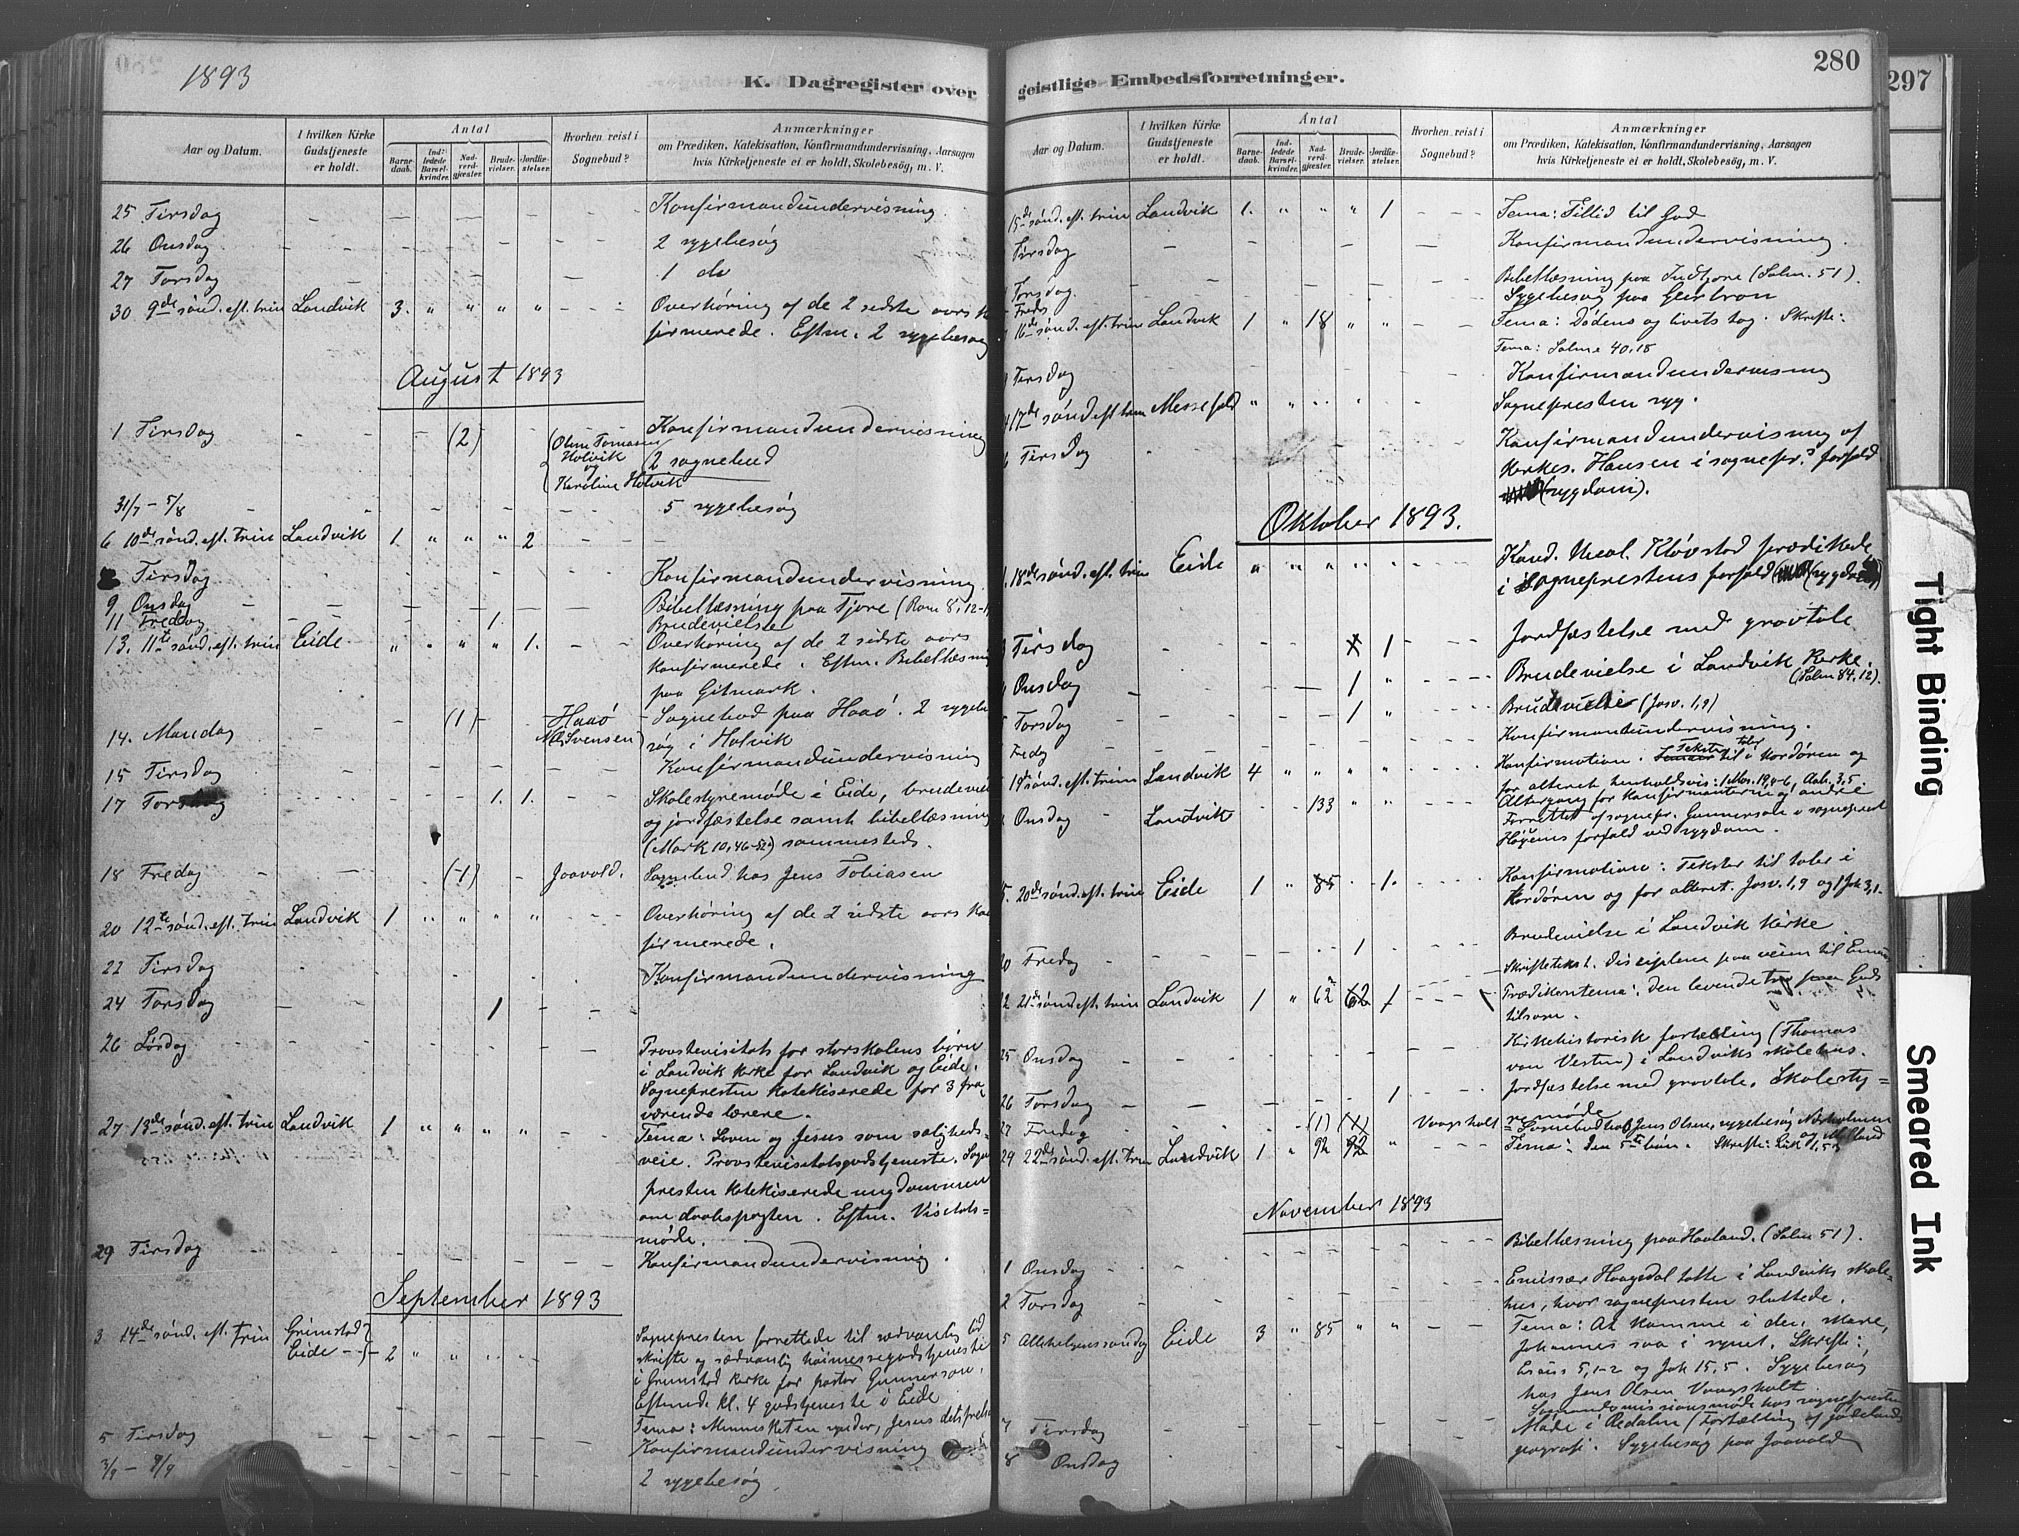 1893
K. Dagregister over
Aar og Datum.
I hvilken Kirke Gudstjeneste er holdt.
Antal
Barnedaab.
Indledede Barselkvinder.
Nadverdgjæster.
Brudevielser.
Jordfæstelser.
Hvorhen reist i Sognebud?
Anmærkninger
om Prædiken, Katekisation, Konfirmandundervisning, Aarsagen
hvis Kirketjeneste ei er holdt, Skolebesøg, m. V.
25 Tirsdag Konfirmandundervisning.
26 Onsdag 2 sygebesøg
27 Torsdag 1 do
30 9de sønd. eft. trin Landvik 3. " " " " Overhøring af de 2 sidste aars
firmerede. Eftm. 2 sygebesøg
August 1893
1 Tirsdag (2) Konfirmandundervisning
Holvik 2 sognebud
og
Karoline Holvik
31/7 – 5/8 5 sygebesøg
6 10de sønd. eft. trin Landvik 1. " " " 2
Tirsdag Konfirmandundervisning
9 Onsdag Bibellæsning paa Fjære (Rom 8, 12-
11 Fredag 1. Brudevielse
13. 11te sønd. eft. trin Eide " " " " 1. Overhøring af de 2 sidste aars
konfirmerede. Eftm. Bibellæsnin
paa Gitmark.
14. Mandag (1) Haaö Sognebud paa Haaö. 2 sygebe
Svensen søg i Holvik
15 Tirsdag Konfirmandundervisning
17 Torsdag 1. 1. Skolestyremøde i Eide, brudeviel
og jordfæstelse samt bibellæsning
(Mark 10, 46-52) sammesteds.
18 Fredag (1) Jaavold. Sognebud hos Jens Tobiasen
20 12te sønd. eft. trin Landvik 1 " " " " Overhøring af de 2 sidste aars kon
firmerede.
22 Tirsdag Konfirmandundervisning
24 Torsdag 1
26 Lørdag Provstevisitats for storskolens børn
i Landvik kirke for Landvik og Eide.
Sognepresten katekiserede for 3 fra
værende lærere.
27 13de sønd. eft. trin Landvik 1 " " " " Tema: Loven og Jesus som saligheds-
veie. Provstevisitatsgudstjeneste. Sogne
presten katekiserede ungdommen
om daabspagten. Eftm. Visitats-
møde.
29 Tirsdag Konfirmandundervisning.
September 1893
3 14de sønd. eft. trin Grimstad Sognepresten forrettede til sædvanlig tid
Eide 2 " " skrifte og sædvanlig høimessegudstjeneste
i Grimstad kirke for pastor Gunnersen.
Efterm. kl. 4 gudstjeneste i Eide
Tema: Mennesket en synder, Jesus dets frelse
5 Tirsdag Konfirmandundervisning
3/9 – 9/9 2 sygebesøg
280
297
geistlige Embedsforretninger.
Aar og Datum.
I hvilken Kirke Gudstjeneste er holdt.
Antal
Barnedaab.
Indledede Barselkvinder.
Nadverdgjæster.
Brudevielser.
Jordfæstelser.
Hvorhen reist i Sognebud?
Anmærkninger
om Prædiken, Katekisation, Konfirmandundervisning, Aarsagen
hvis Kirketjeneste ei er holdt, Skolebesøg, m. V.
15de sønd. eft. trin Landvik 1. " " " 1 Tema: Tillid til Gud
Tirsdag Konfirmandundervisning.
Torsdag Bibellæsning paa Indtjore (Salm. 51).
Fredag Sygebesøg paa Geirbron
16de sønd. eft. trin Landvik 1 " 18 " " Tema: Dødens og livets tog. Skrifte:
Tema: Salme 40,18
Tirsdag Konfirmandundervisning
17de sønd eft. trin Messefald " " " " Sognepresten syg.
Tirsdag Konfirmandundervisning af
kirkes. Hansen i sognepr.s forfald
(sygdom).
Oktober 1893.
18de sønd. eft. trin Eide " " " " " Kand. theol. Kløvstad prædikede
i Sogneprestens forfald (sygdom)
Tirsdag 1 Jordfæstelse med gravtale
Onsdag 1 " Brudevielse i Landvik Kirke.
(Salm 84,12).
Torsdag 1 " Brudevielse (Josv. 1,9)
Fredag Konfirmandundervisning.
19de sønd. eft. trin Landvik 4 " " " " Konfirmation. Tekster til taler i kordøren og
for alteret henholdsvis: 1 Mos. 19,4-6, Aab. 3,5.
Onsdag Landvik 133 " " Altergang for konfirmanterne og andre
Forrettet af sognepr. Gunnersen i sogneprest
Høyems forfald ved sygdom.
20de sønd. eft. trin Eide 1 " 85 . 1. Konfirmation: Tekster til taler i
kordøren og for alteret. Josv. 1,9 og 1 Joh 3,1.
20 Fredag 1 Brudevielse i Landvik kirke
Skriftetekst. Disciplene paa veien til Emaus
22 21de sønd eft. trin Landvik 1 " 62 62 1 Prædikentema: Den levende tro paa Guds
tilsagn.
25 Onsdag Kirkehistorisk fortælling (Thomas
von Vesten) i Landviks skolehus.
26 Torsdag 1 Jordfæstelse med gravtale. Skolesty=
remøde
27 Fredag (1) (1) Vaagsholt Sognebud hos Jens Olsen, sygebesøg
29 22de sønd. eft. trin Landvik 1 " 92 92 " Tema: Den 5te bøn. Skrifte: Luk 1,53
November 1893
Bibellæsning paa Haaland. (Salm 51).
1 Onsdag Emissær Haagedal talte i Landviks skole-
2 Torsdag hus, hvor sognepresten sluttede.
5 Allehelgenssøndag Eide 3 " 85 " " Tema: At komme i den skare,
Johannes saa i synet. Skrifte:
Esaias 5,1-2 og Joh 15,5. Sygebesøg
hos Jens Olsen Vaagsholt
7 Tirsdag
Møde i Redalen (Fortælling af jødelands
geografi. Sygebesøg paa Jaavold
8 Onsdag
Tight Binding
Smeared Ink